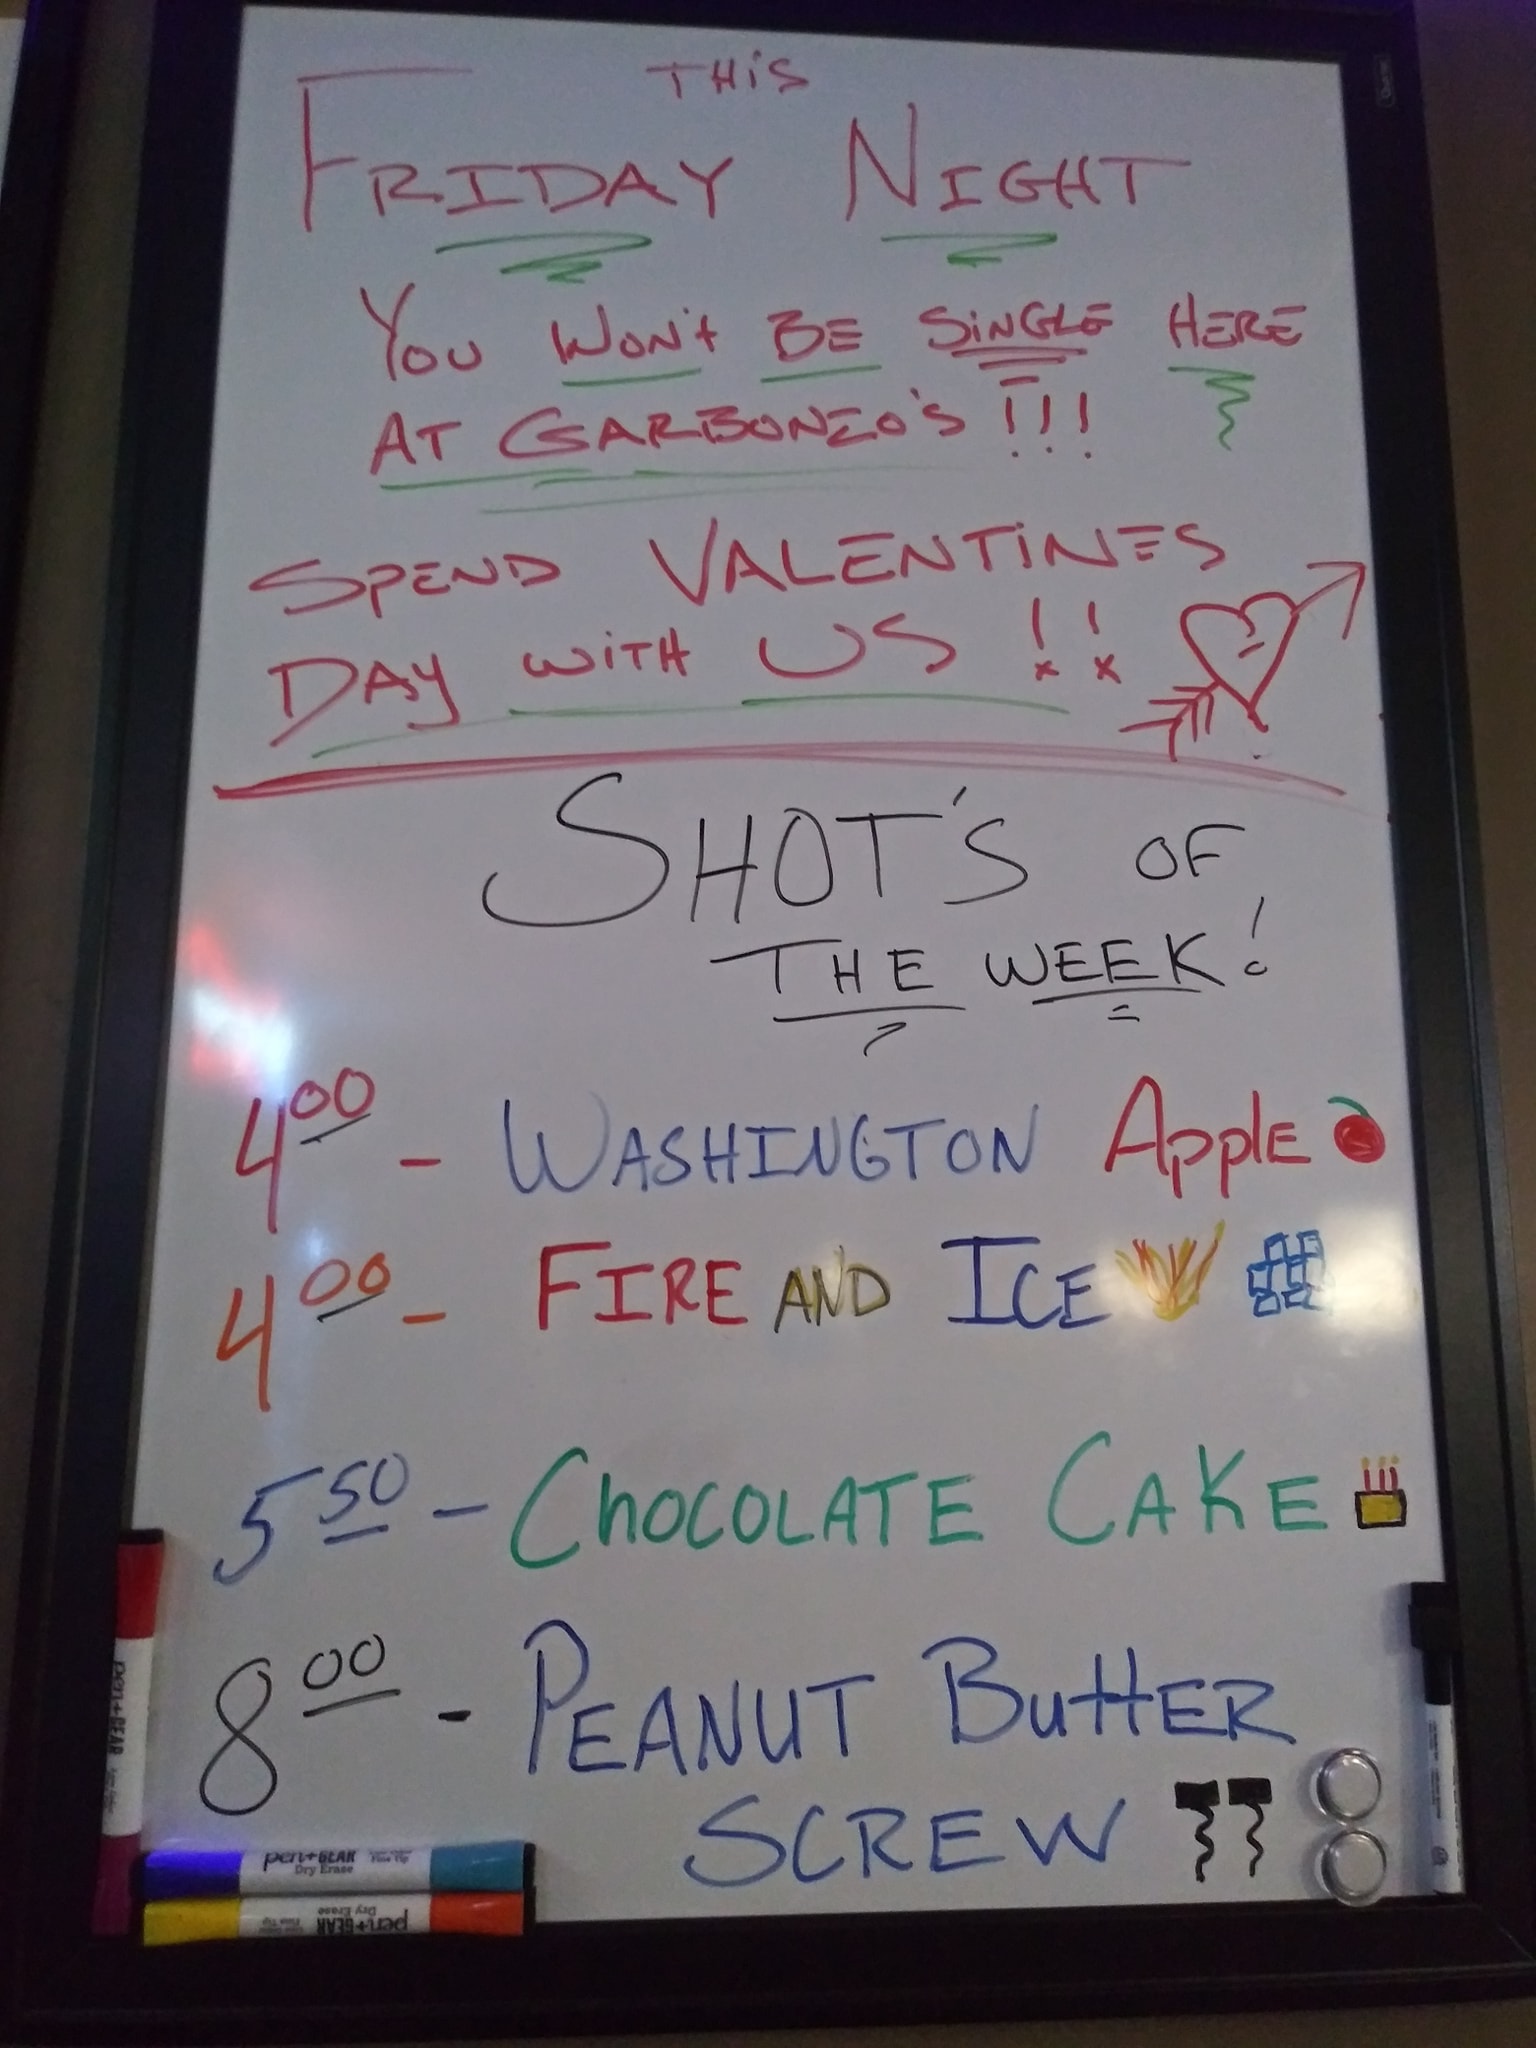 THiS
FRIDAY NIGHT
YOU WON't BE SiNGLE HERE
AT GARBONZO'S !!!
SPEND VALENTiNES
DAY WiTH US !!
SHOT'S OF
THE WEEK!
4.00 - WASHINGTON ApplE
4.00 - FIRE AND ICE
5.50 - ChOCOLATE CAKE
8.00 - PEANUT ButtER
SCREW
pen+GEAR
pen+GEAR
Dry Erase
Fine Tip
pen+GEAR
Dry Erase
Fine Tip